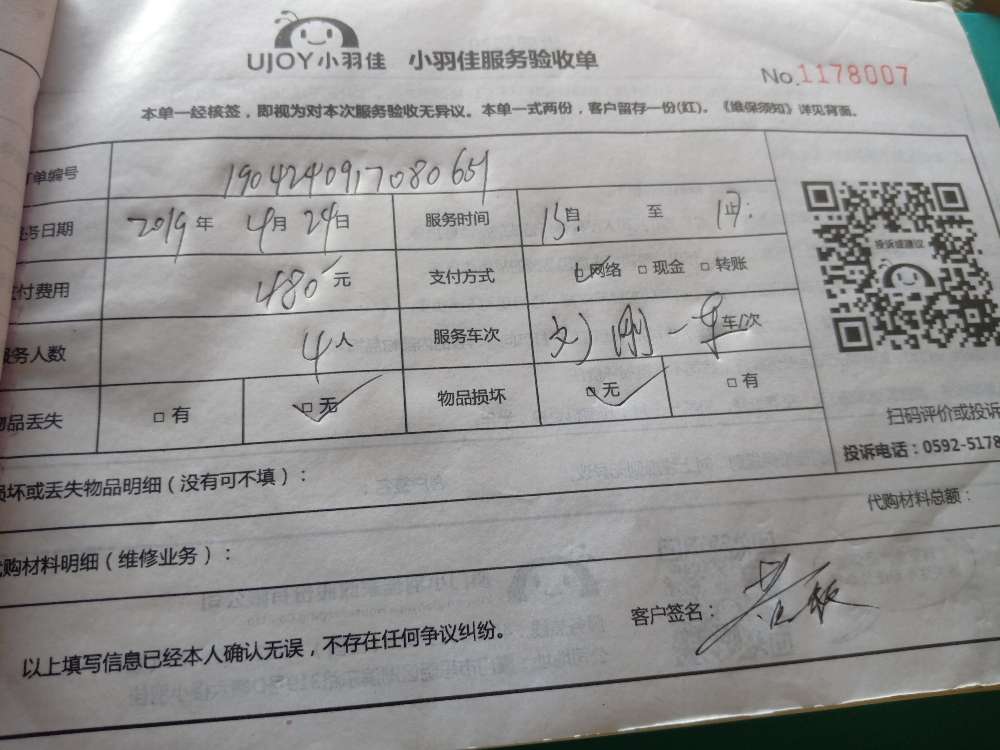 UJOY小羽佳 小羽佳服务验收单
No.1178007
本单一经核签，即视为对本次服务验收无异议。本单一式两份，客户留存一份(红)。《维保须知》详见背面。
单编号 1904240917080651
务日期 2019年 4月 24日 服务时间 13自 至 17止:
付费用 480元 支付方式 □网络 □现金 □转账
务人数 4人 服务车次 一 车/次
品丢失 □有 □无 物品损坏 □无 □有
投诉或建议
扫码评价或投诉
投诉电话：0592-5178
损坏或丢失物品明细（没有可不填）：
代购材料总额：
购材料明细（维修业务）：
客户签名：
以上填写信息已经本人确认无误，不存在任何争议纠纷。